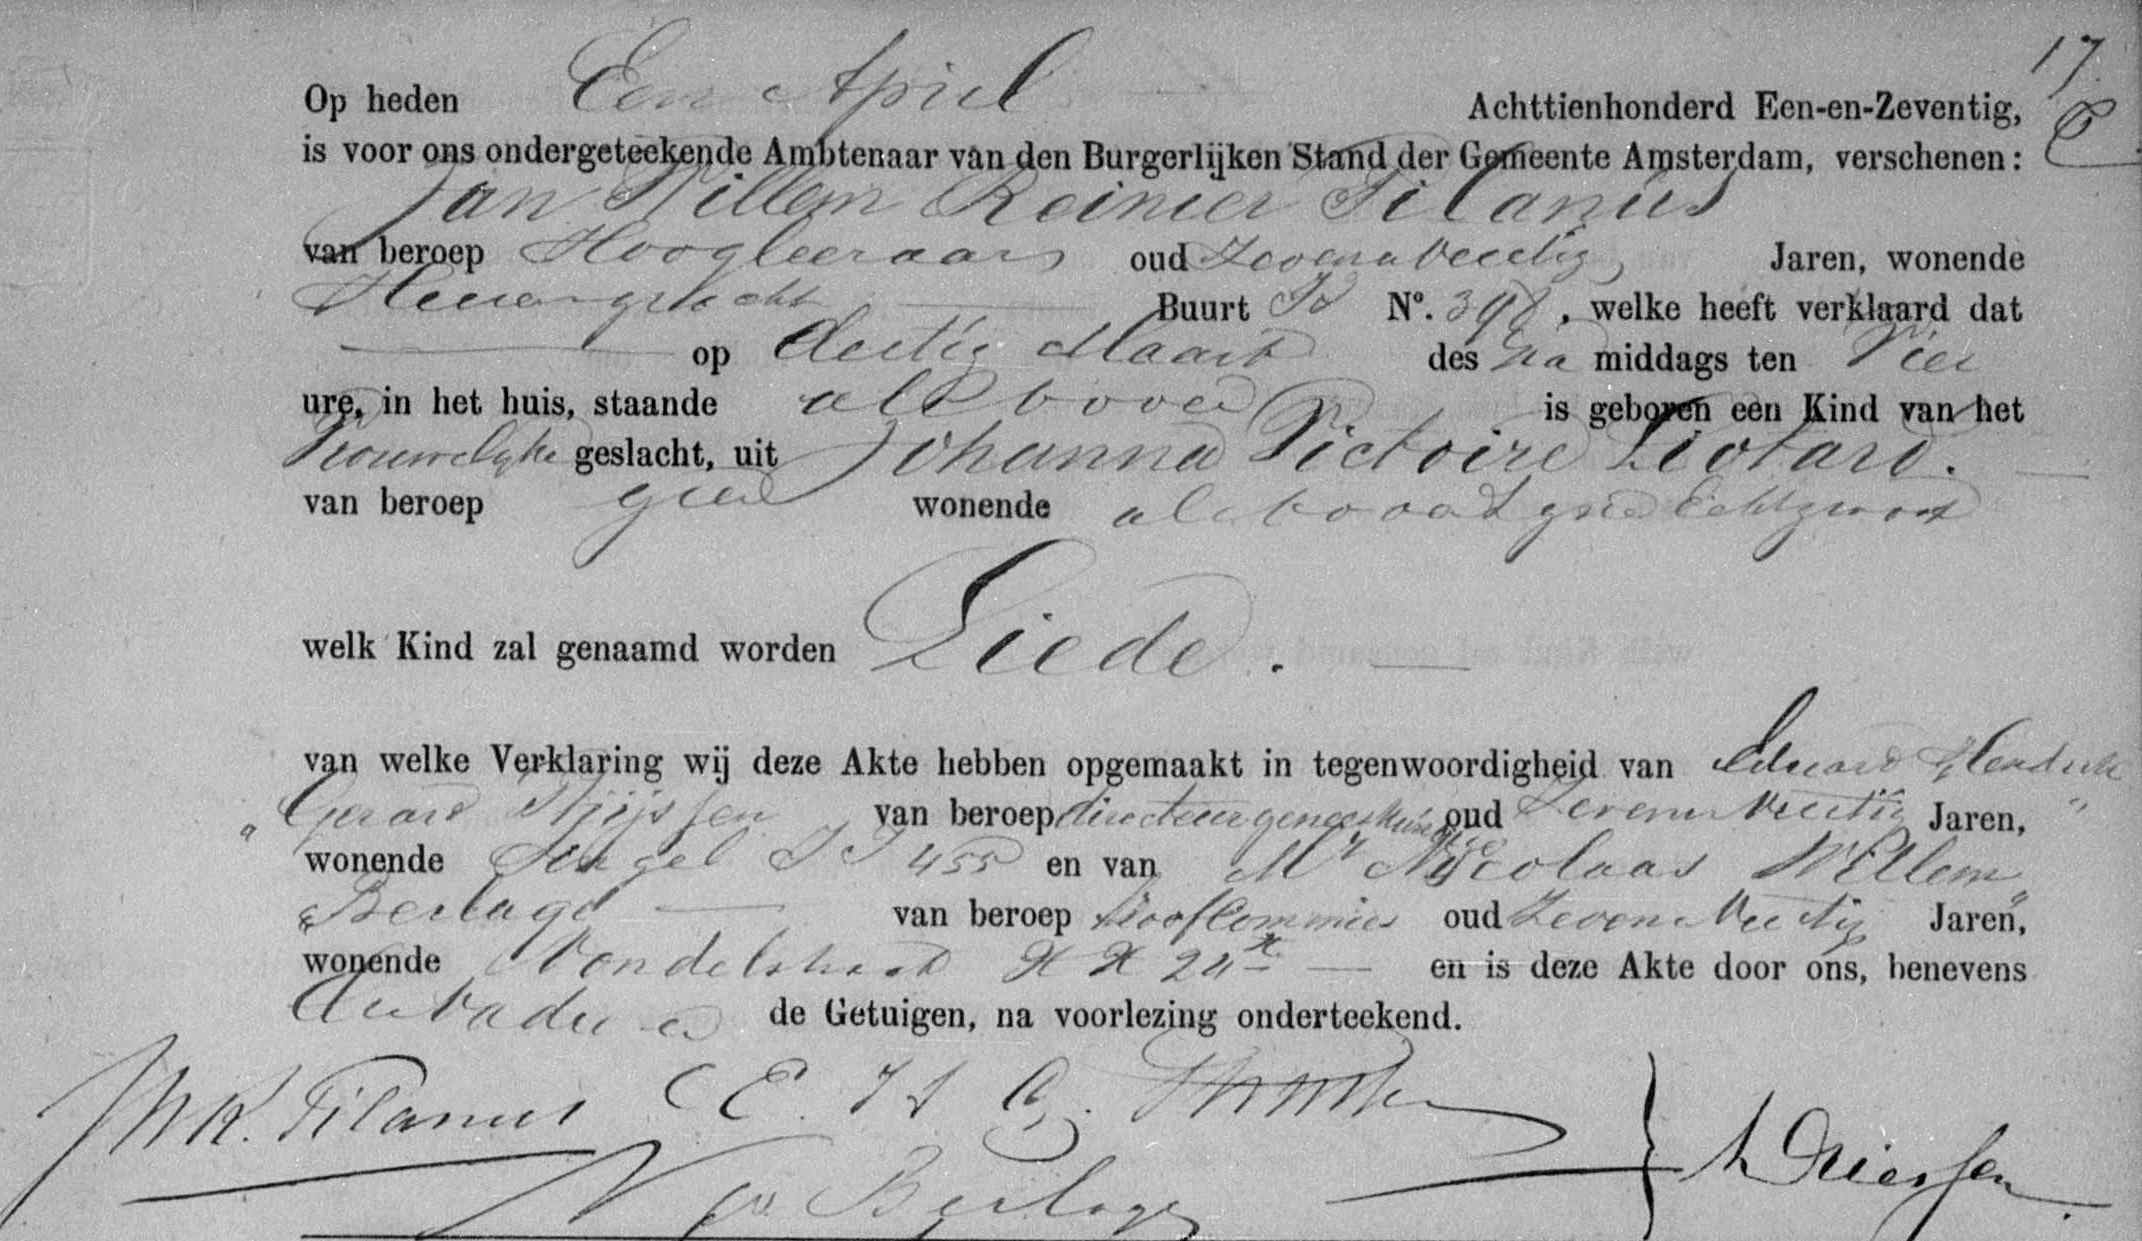 17.
Op heden Een April Achttienhonderd Een-en-Zeventig,
is voor ons ondergeteekende Ambtenaar van den Burgerlijken Stand der Gemeente Amsterdam, verschenen:
Jan Willem Reinier Tilanus
van beroep Hoogleeraar oud Zevenenveertig Jaren, wonende
Heerengracht Buurt No. 398, welke heeft verklaard dat
op dertig Maart des na middags ten Vier
ure, in het huis, staande alsboven is geboren een Kind van het
Vrouwelijke geslacht, uit Johanna Victoire Liotard.
van beroep geen wonende alsboven zijne Echtgenoot
welk Kind zal genaamd worden Liede.
van welke Verklaring wij deze Akte hebben opgemaakt in tegenwoordigheid van Eduard Hendrik
Gerard Thijssen van beroep directeur geneeskundige oud Zevenenveertig Jaren,
wonende Singel 455 en van Mr Nicolaas Willem
Berlage van beroep Hoofdcommies oud Zevenenveertig Jaren,
wonende Vondelstraat XX 24 en is deze Akte door ons, benevens
den Vader en de Getuigen, na voorlezing onderteekend.
JWR. Tilanus E. H. G. Thijssen
N W Berlage
Driessen